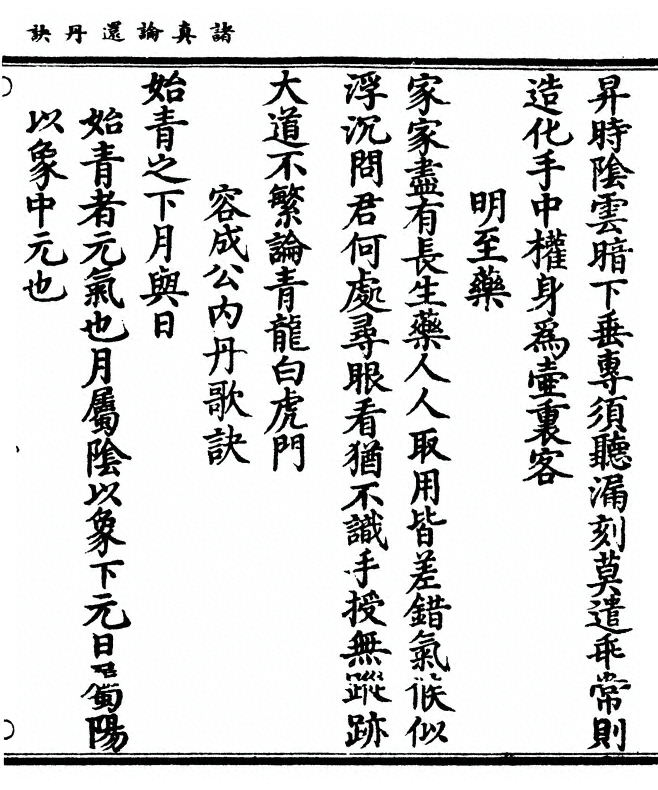 諸真論還丹訣
昇時陰雲暗下垂專須聽漏刻莫遣乖常則
造化手中權身為壺裏客
明至藥
家家盡有長生藥人人取用皆差錯氣候似
浮沉問君何處尋眼看猶不識手授無蹤跡
大道不繁論青龍白虎門
容成公內丹歌訣
始青之下月與日
始青者元氣也月屬陰以象下元日屬陽
以象中元也